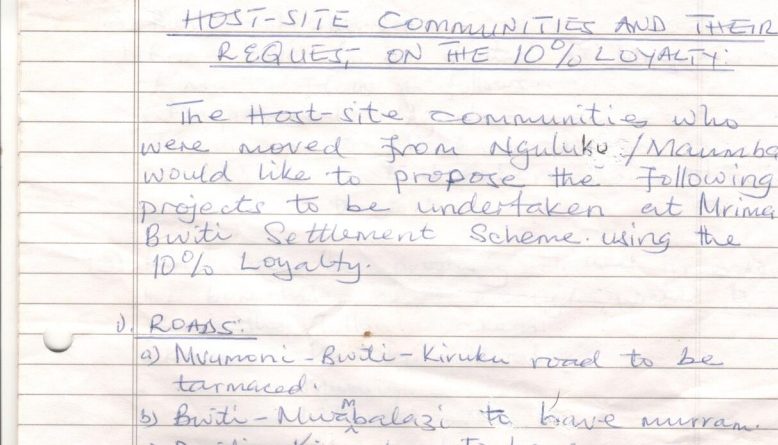 HOST-SITE COMMUNITIES AND THEIR
REQUEST ON THE 10% LOYALTY:
The Host-site communities who
were moved from Nguluku/Maumba
would like to propose the following
projects to be undertaken at Mrima
Bwiti Settlement Scheme. using the
10% Loyalty.
i). ROADS:
a) Mvumoni - Bwiti - Kiruku road to be
tarmaced.
b) Bwiti - Mwambalazi to have murram.